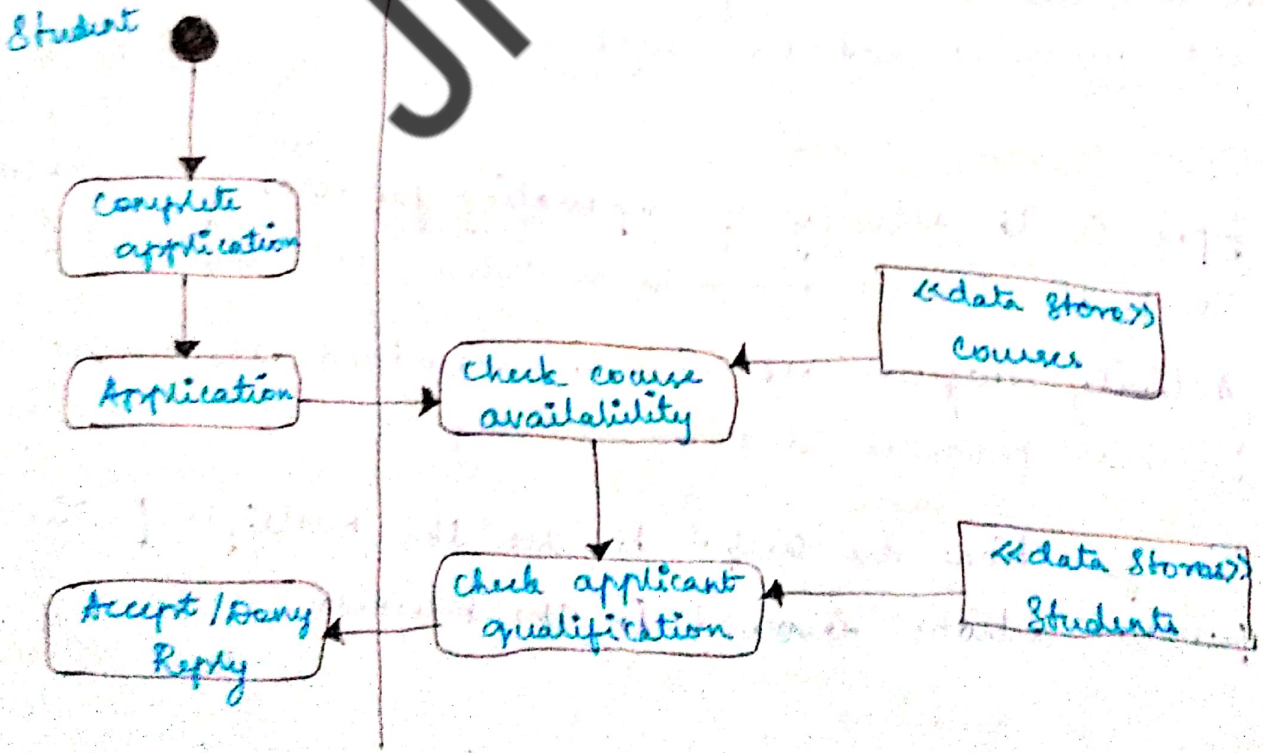 Student
Complete
application
Application
Check course
availability
<<data Store>>
Courses
Check applicant
qualification
<<data Stores>>
Students
Accept / Deny
Reply